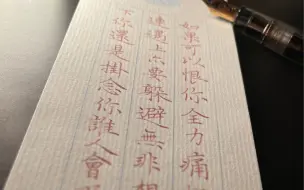 如果可以恨你全力痛
連遇上亦要躲避無非想
下你還是掛念你誰人會